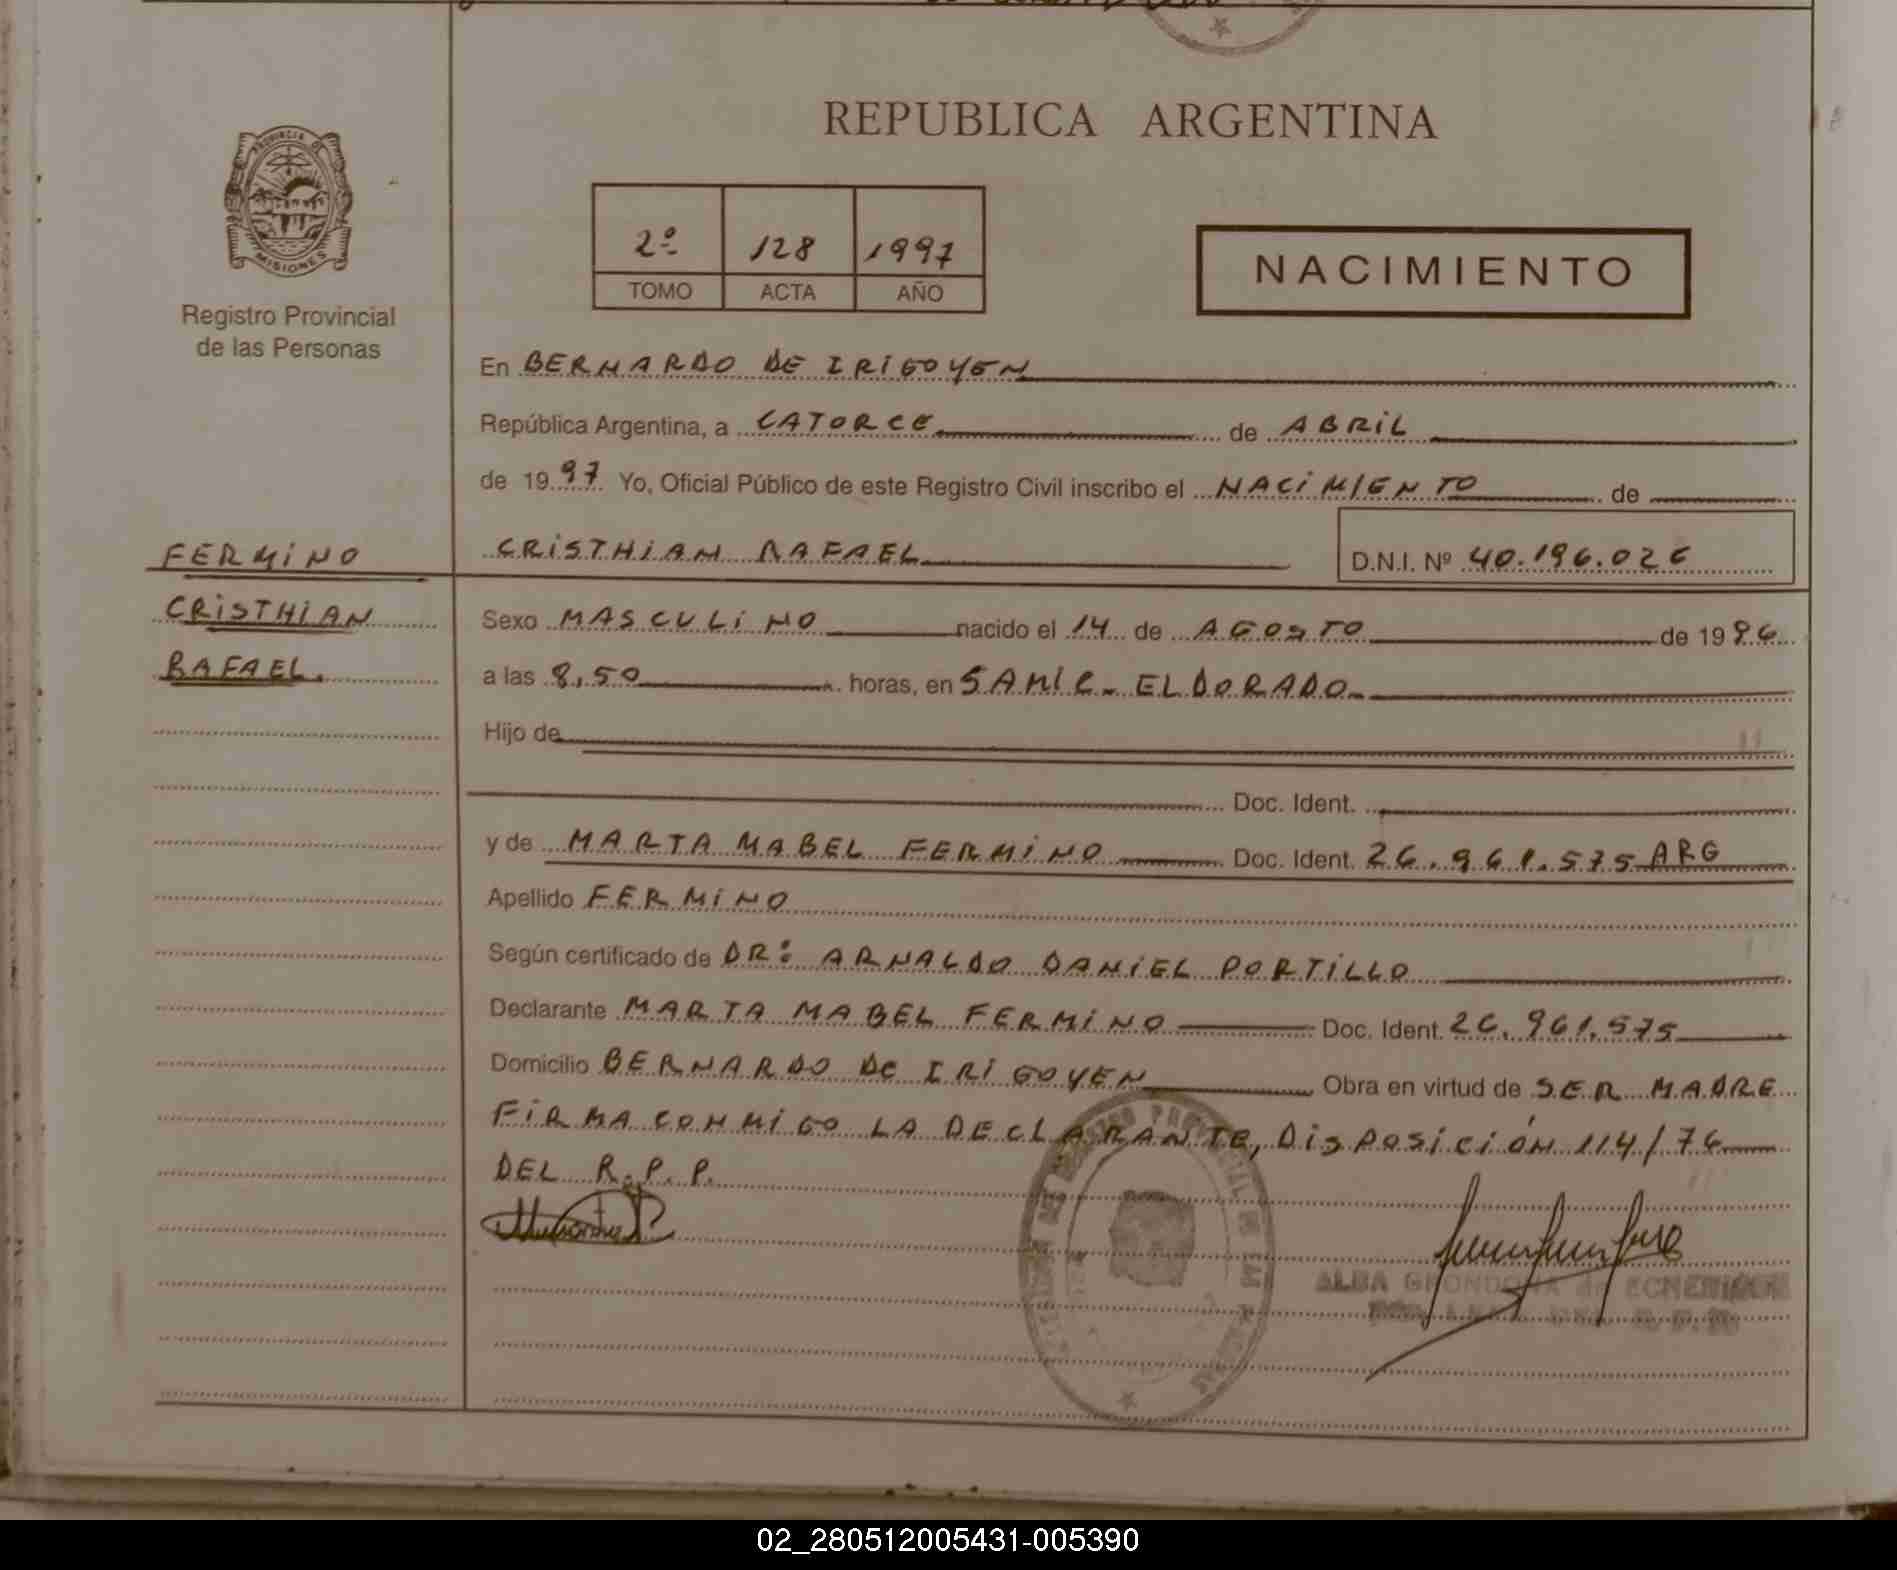 REPUBLICA ARGENTINA
PROVINCIA DE
MISIONES
Registro Provincial
de las Personas
2º 128 1997
TOMO ACTA AÑO
NACIMIENTO
En BERNARDO DE IRIGOYEN
República Argentina, a CATORCE de ABRIL
de 1997 Yo, Oficial Público de este Registro Civil inscribo el NACIMIENTO de
CRISTHIAN RAFAEL D.N.I. Nº 40.196.026
FERMINO
CRISTHIAN
RAFAEL.
Sexo MASCULINO nacido el 14 de AGOSTO de 1996
a las 8,50 horas, en SAMIC- ELDORADO
Hijo de
Doc. Ident.
y de MARTA MABEL FERMINO Doc. Ident. 26.961.575 ARG
Apellido FERMINO
Según certificado de DR: ARNALDO DANIEL PORTILLO
Declarante MARTA MABEL FERMINO Doc. Ident. 26.961.575
Domicilio BERNARDO DE IRIGOYEN Obra en virtud de SER MADRE
FIRMA CONMIGO LA DECLARANTE, DISPOSICIÓN 114/76
DEL R.P.P.
ALBA GRONDONA de
02_280512005431-005390